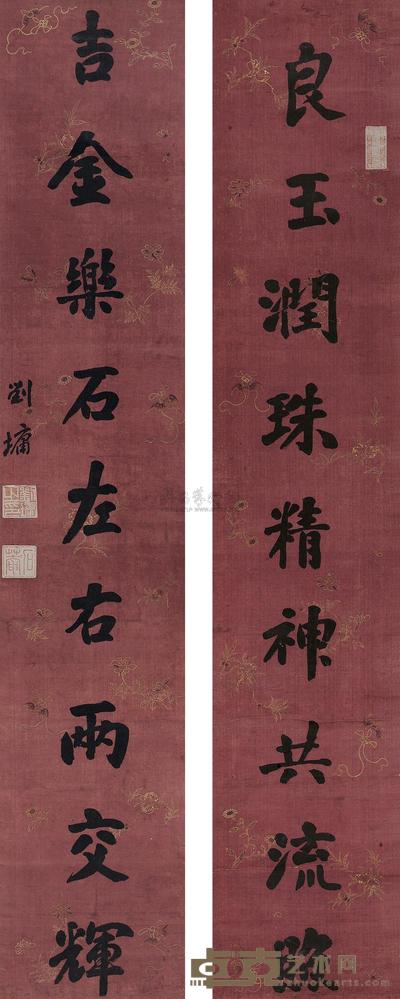 良玉潤珠精神共流
吉金樂石左右兩交輝
劉墉
艺术网